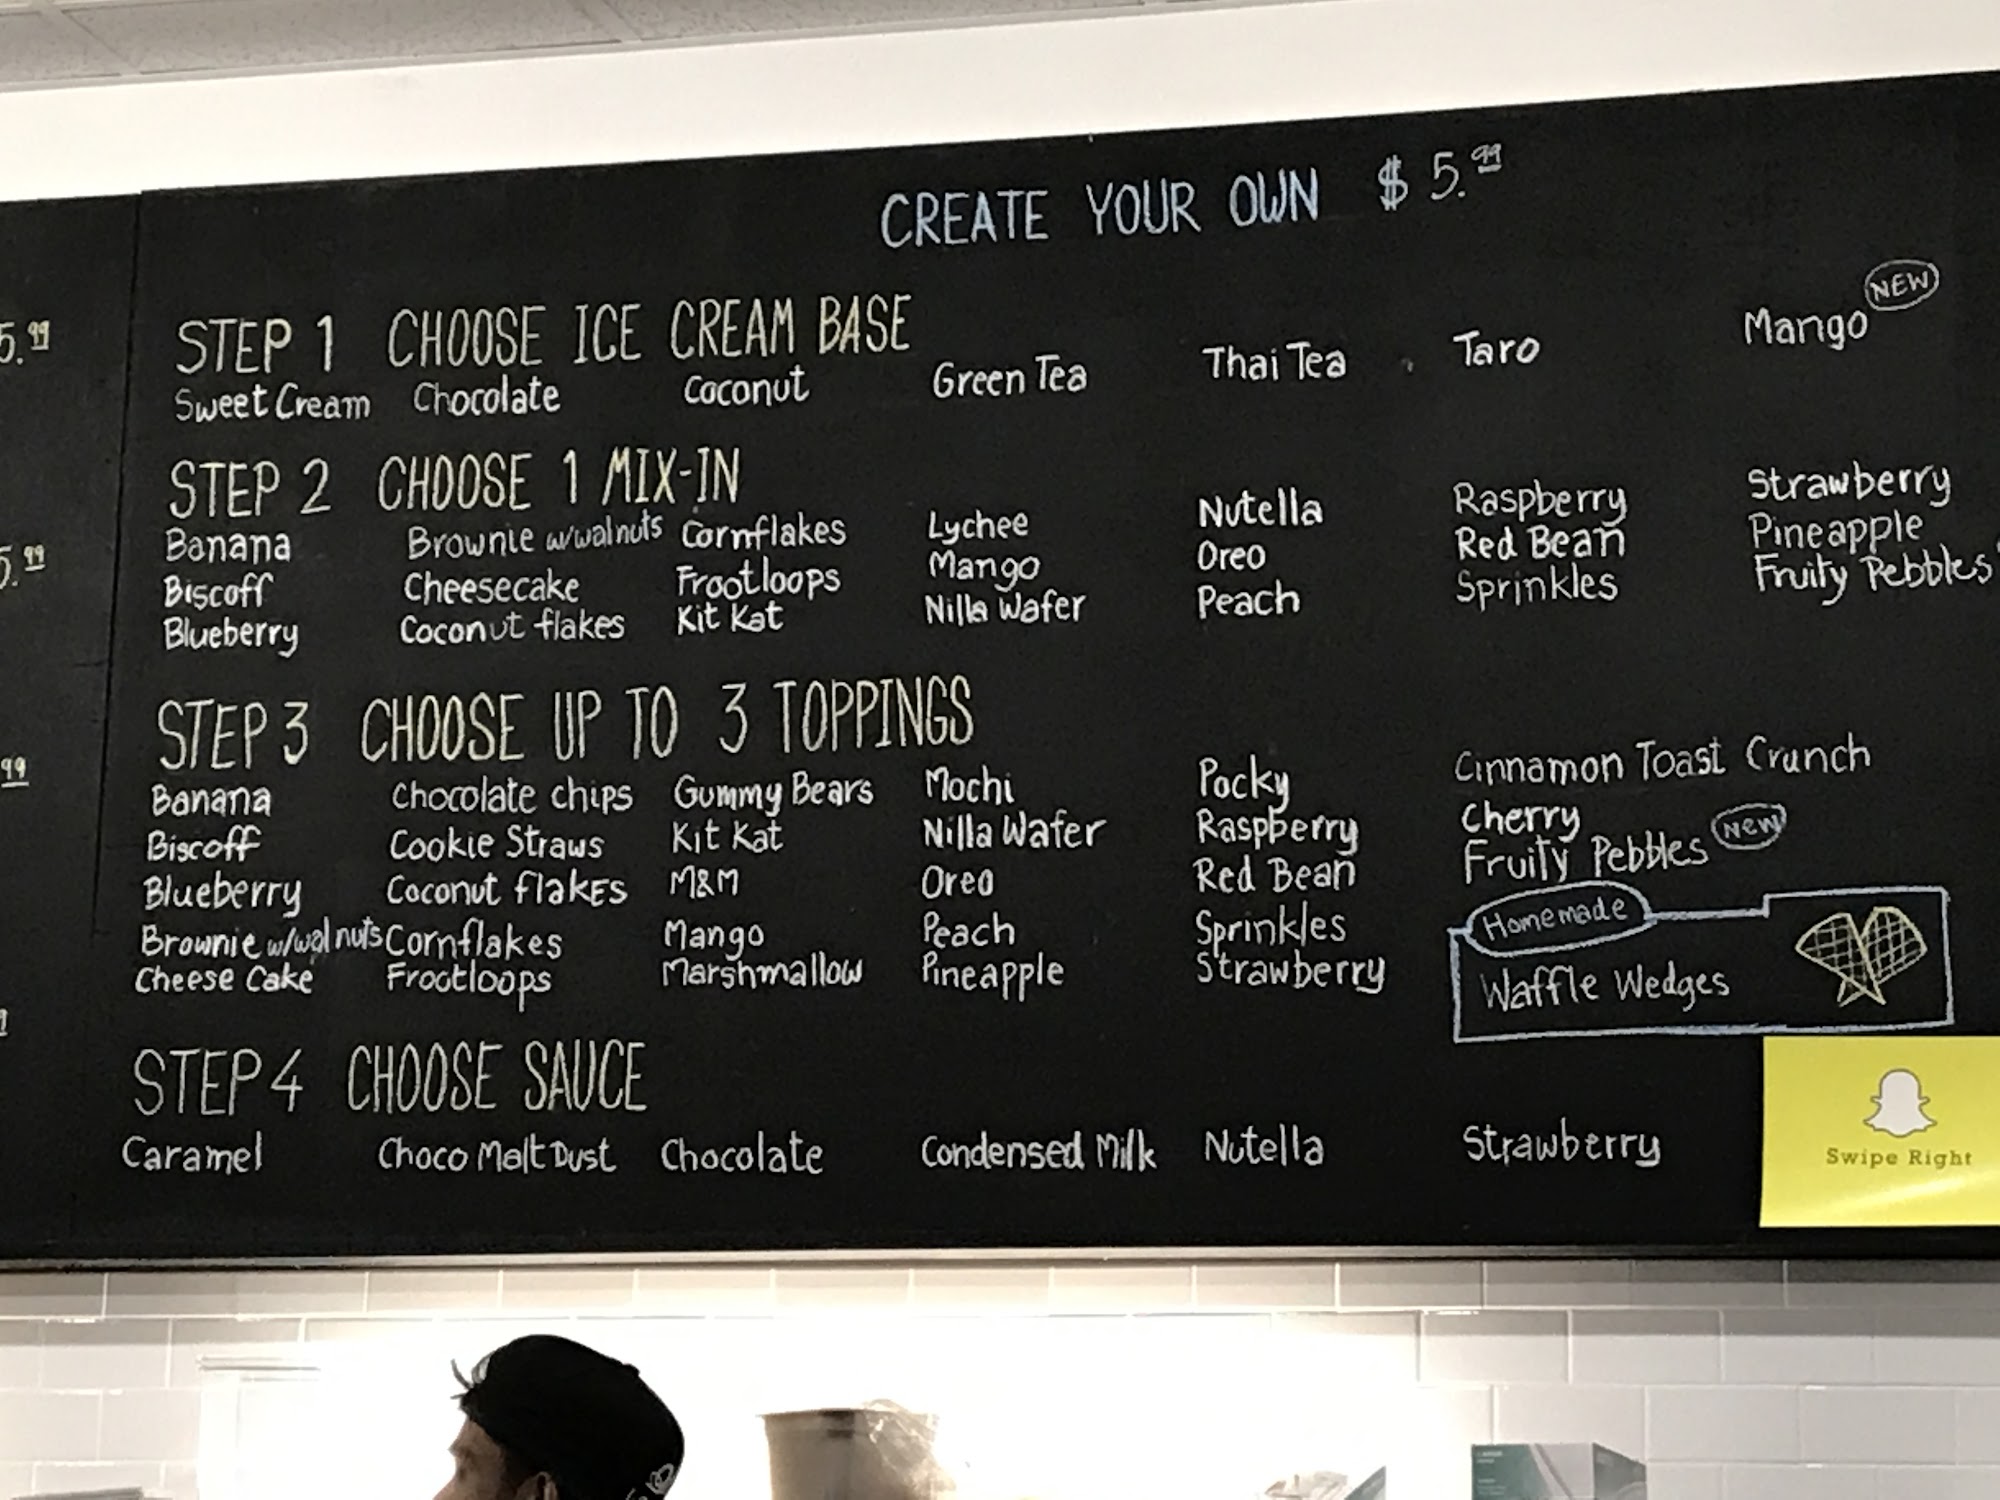 CREATE YOUR OWN $5.99
STEP 1 CHOOSE ICE CREAM BASE
Sweet Cream Chocolate Coconut Green Tea Thai Tea Taro Mango NEW
STEP 2 CHOOSE 1 MIX-IN
Banana Brownie w/walnuts Cornflakes Lychee Nutella Raspberry Strawberry
Biscoff Cheesecake Frootloops Mango Oreo Red Bean Pineapple
Blueberry Coconut flakes Kit Kat Nilla Wafer Peach Sprinkles Fruity Pebbles
STEP 3 CHOOSE UP TO 3 TOPPINGS
Banana Chocolate chips Gummy Bears Mochi Pocky Cinnamon Toast Crunch
Biscoff Cookie Straws Kit Kat Nilla Wafer Raspberry Cherry
Blueberry Coconut flakEs M&M Oreo Red Bean Fruity Pebbles New
Brownie w/walnuts Cornflakes Mango Peach Sprinkles Homemade
Cheese Cake Frootloops Marshmallow Pineapple Strawberry Waffle Wedges
STEP 4 CHOOSE SAUCE
Caramel Choco Malt Dust Chocolate Condensed Milk Nutella Strawberry
Swipe Right
5.99
5.99
99